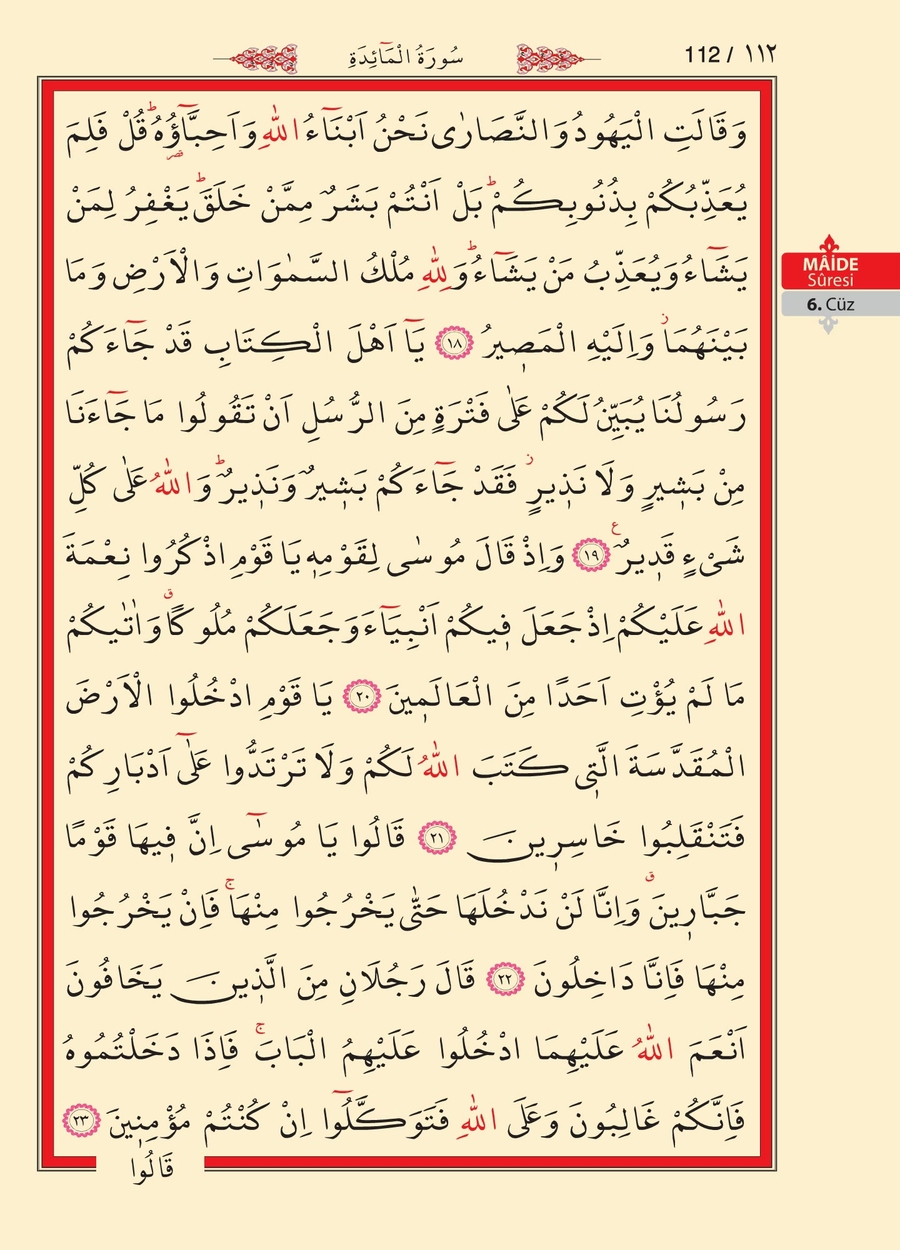 112 / ١١٢
سُورَةُ الْمَٓائِدَةِ
وَقَالَتِ الْيَهُودُ وَالنَّصَارٰى نَحْنُ اَبْنَٓاءُ اللّٰهِ وَاَحِبَّٓاؤُ۬هُۜ قُلْ فَلِمَ
يُعَذِّبُكُمْ بِذُنُوبِكُمْۜ بَلْ اَنْتُمْ بَشَرٌ مِمَّنْ خَلَقَۜ يَغْفِرُ لِمَنْ
يَشَٓاءُ وَيُعَذِّبُ مَنْ يَشَٓاءُۜ وَلِلّٰهِ مُلْكُ السَّمٰوَاتِ وَالْاَرْضِ وَمَا
بَيْنَهُمَاۘ وَاِلَيْهِ الْمَص۪يرُ ﴿١٨﴾ يَٓا اَهْلَ الْكِتَابِ قَدْ جَٓاءَكُمْ
رَسُولُنَا يُبَيِّنُ لَكُمْ عَلٰى فَتْرَةٍ مِنَ الرُّسُلِ اَنْ تَقُولُوا مَا جَٓاءَنَا
مِنْ بَش۪يرٍ وَلَا نَذ۪يرٍۘ فَقَدْ جَٓاءَكُمْ بَش۪يرٌ وَنَذ۪يرٌۜ وَاللّٰهُ عَلٰى كُلِّ
شَيْءٍ قَد۪يرٌ۟ ﴿١٩﴾ وَاِذْ قَالَ مُوسٰى لِقَوْمِه۪ يَا قَوْمِ اذْكُرُوا نِعْمَةَ
اللّٰهِ عَلَيْكُمْ اِذْ جَعَلَ ف۪يكُمْ اَنْبِيَٓاءَ وَجَعَلَكُمْ مُلُوكًاۗ وَاٰتٰيكُمْ
مَا لَمْ يُؤْتِ اَحَدًا مِنَ الْعَالَم۪ينَ ﴿٢٠﴾ يَا قَوْمِ ادْخُلُوا الْاَرْضَ
الْمُقَدَّسَةَ الَّت۪ي كَتَبَ اللّٰهُ لَكُمْ وَلَا تَرْتَدُّوا عَلٰٓى اَدْبَارِكُمْ
فَتَنْقَلِبُوا خَاسِر۪ينَ ﴿٢١﴾ قَالُوا يَا مُوسٰٓى اِنَّ ف۪يهَا قَوْمًا
جَبَّار۪ينَۗ وَاِنَّا لَنْ نَدْخُلَهَا حَتّٰى يَخْرُجُوا مِنْهَاۚ فَاِنْ يَخْرُجُوا
مِنْهَا فَاِنَّا دَاخِلُونَ ﴿٢٢﴾ قَالَ رَجُلَانِ مِنَ الَّذ۪ينَ يَخَافُونَ
اَنْعَمَ اللّٰهُ عَلَيْهِمَا ادْخُلُوا عَلَيْهِمُ الْبَابَۚ فَاِذَا دَخَلْتُمُوهُ
فَاِنَّكُمْ غَالِبُونَ وَعَلَى اللّٰهِ فَتَوَكَّلُٓوا اِنْ كُنْتُمْ مُؤْمِن۪ينَ ﴿٢٣﴾
قَالُوا
MÂİDE
Sûresi
6. Cüz